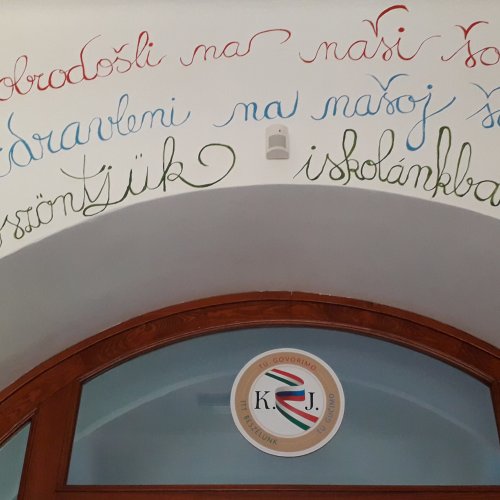 obrodošli na naši šo
zdravleni na našoj š
öszöntjük iskolánkba
TU GOVORIMO
K. J.
ITT BESZÉLÜNK
TU GUČIMO